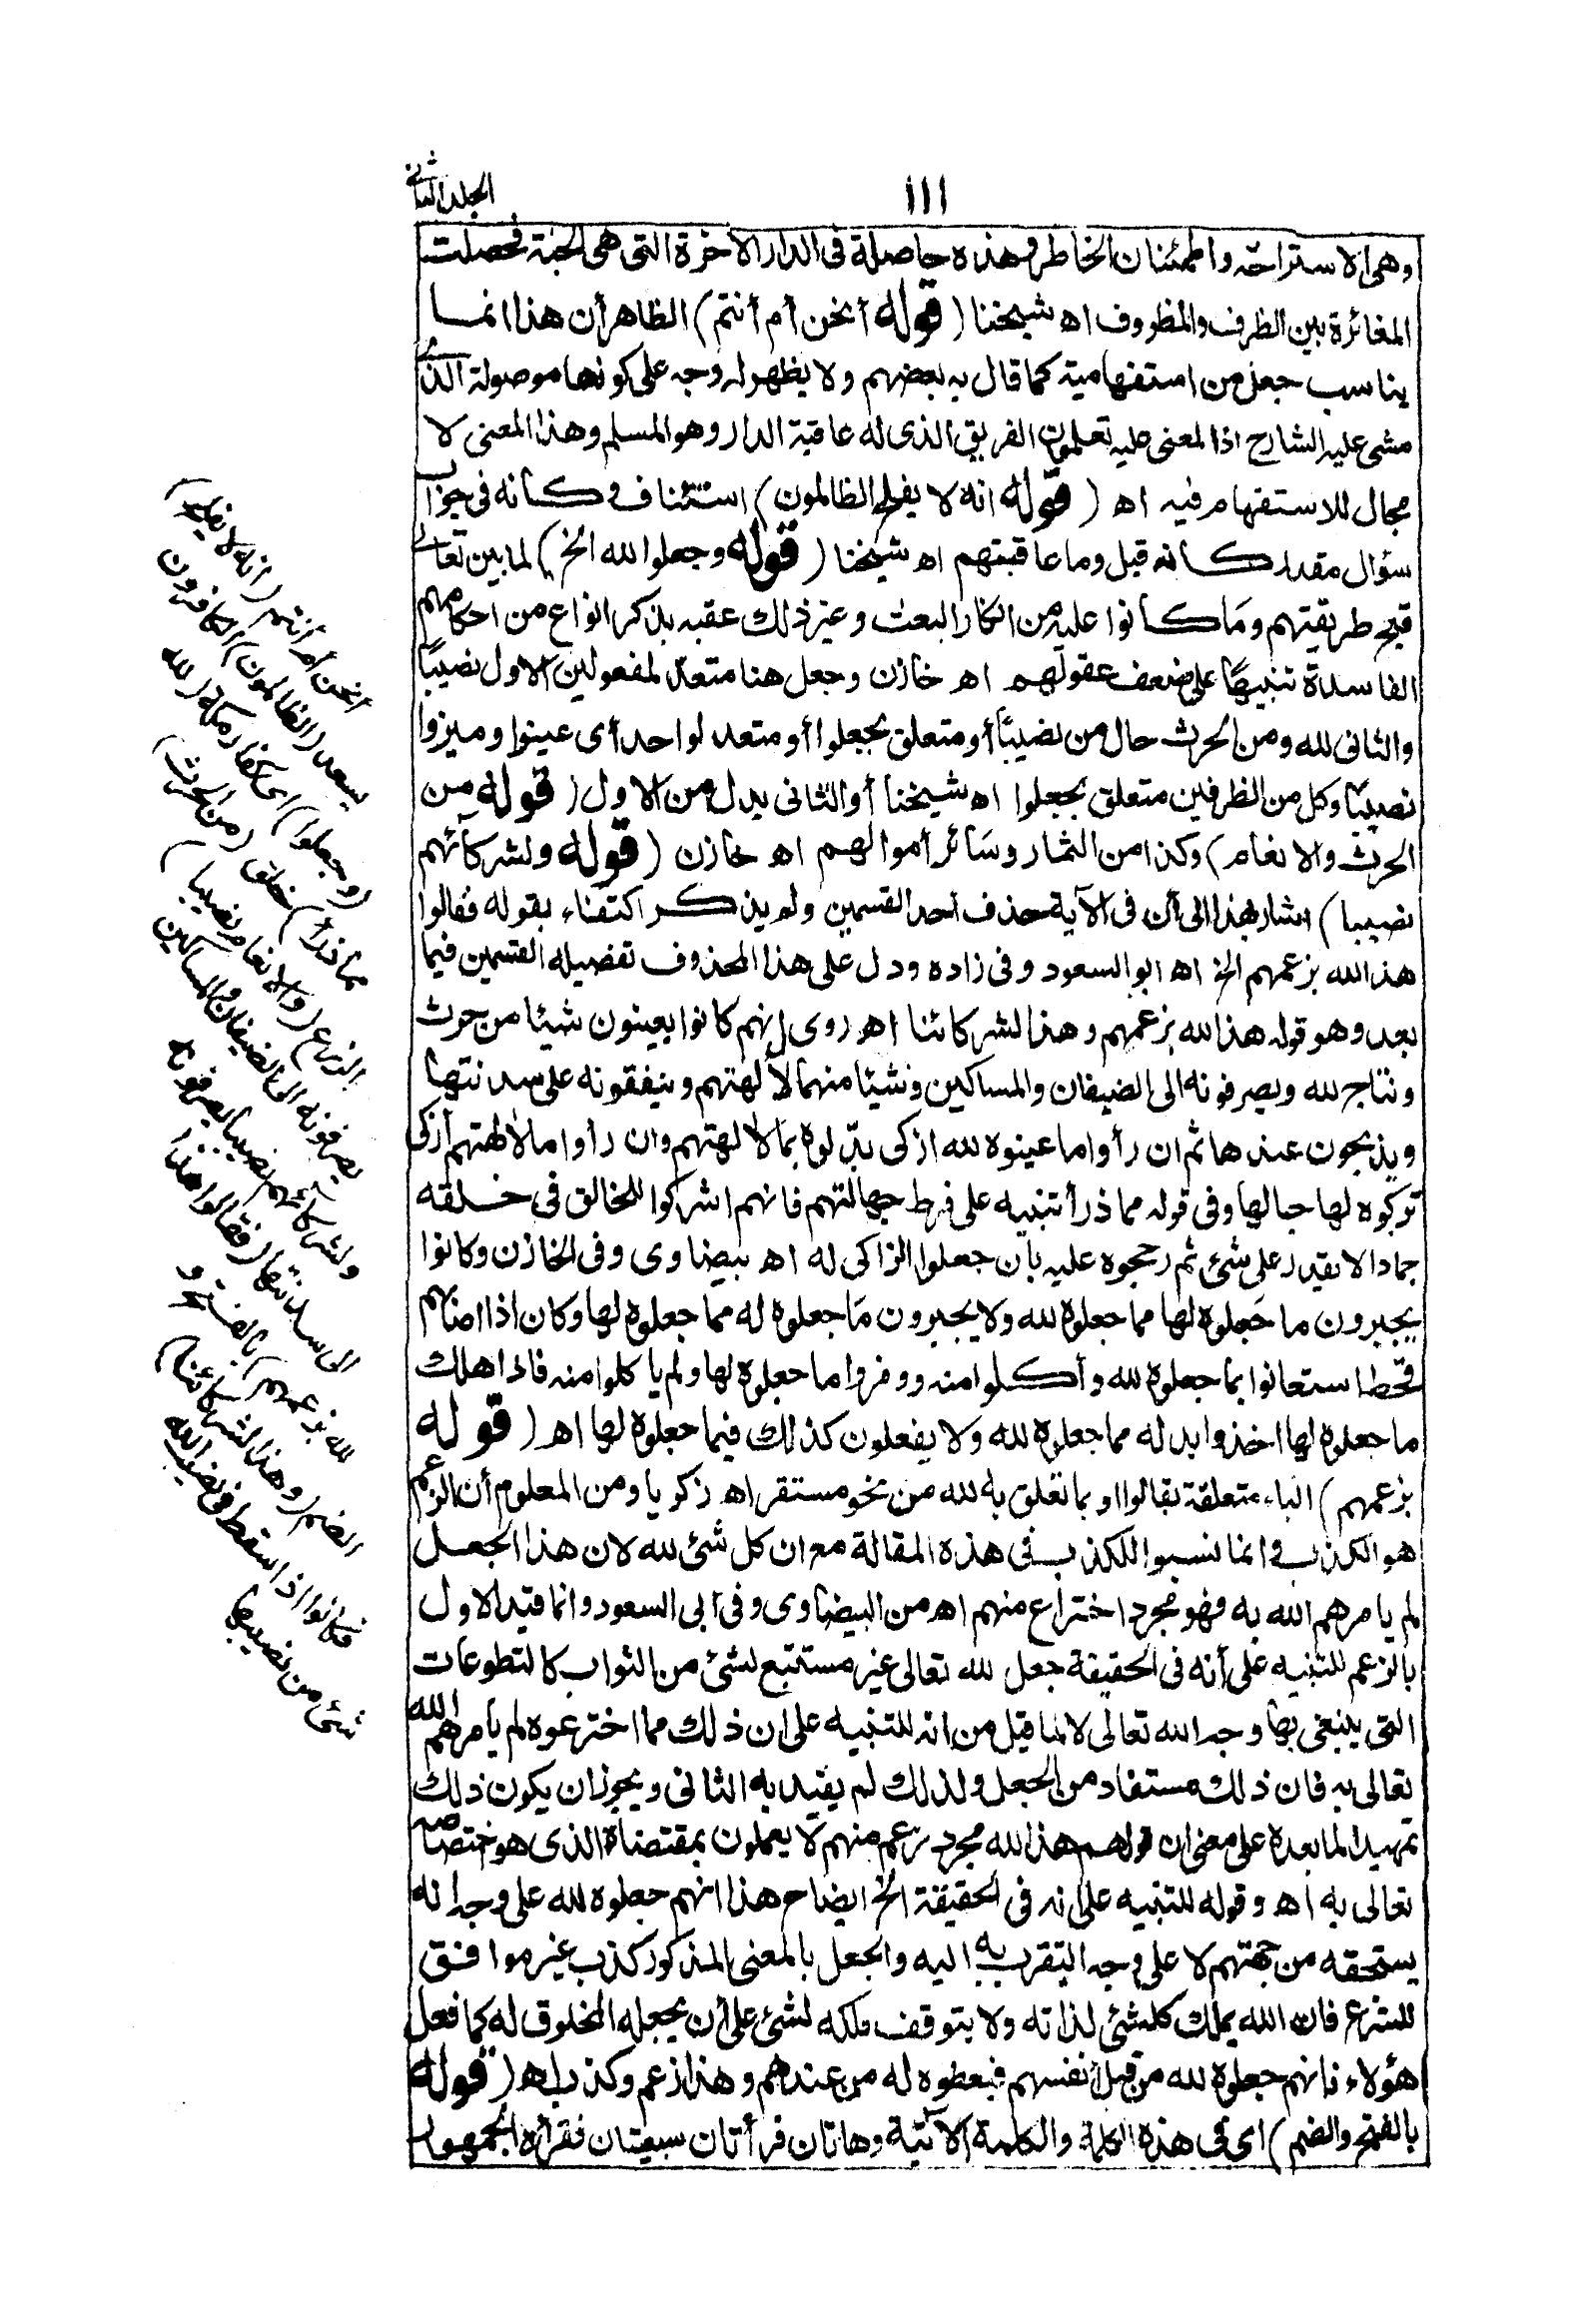 ١١١
المجلد الثاني
وهى الاستراحة واطمئنان الخاطر وهذه حاصلة فى الدار الآخرة التى هى الجنة فحصلت
المغائرة بين الظرف والمظروف اه شيخنا ( قوله أنحن أم أنتم ) الظاهر أن هذا انما
يناسب جعل من استفهامية كما قال به بعضهم ولا يظهر له وجه على كونها موصولة الذى
مشى عليه الشارح اذ المعنى عليه تعلمون الفريق الذى له عاقبة الدار وهو المسلم وهذا المعنى لا
مجال للاستفهام فيه اه ( قوله انه لا يفلح الظالمون ) استئناف وكأنه فى جواب
سؤال مقدر كأنه قيل وما عاقبتهم اه شيخنا ( قوله وجعلوا لله الخ ) لما بين تعالى
قبيح طريقتهم وما كانوا عليه من انكار البعث وغير ذلك عقبه بذكر انواع من احكامهم
الفاسدة تنبيها على ضعف عقولهم اه خازن وجعل هنا متعد لمفعولين الاول نصيبا
والثانى لله ومن الحرث حال من نصيبا أو متعلق بجعلوا أو متعد لواحد أى عينوا وميزوا
نصيبا وكل من الظرفين متعلق بجعلوا اه شيخنا أو الثانى بدل من الاول ( قوله من
الحرث والانعام ) وكذا من الثمار وسائر أموالهم اه خازن ( قوله ولشركائهم
نصيبا ) اشار بهذا الى أن فى الآية حذف أحد القسمين ولم يذكر اكتفاء بقوله فقالوا
هذا لله بزعمهم الخ اه ابو السعود وفى زاده ودل على هذا المحذوف تفصيله القسمين فيما
بعد وهو قوله هذا لله بزعمهم وهذا لشركائنا اه روى انهم كانوا يعينون شيئا من حرث
ونتاج لله ويصرفونه الى الضيفان والمساكين وشيئا منهما لآلهتهم وينفقونه على سدنتها
ويذبحون عندها ثم ان رأوا ما عينوه لله ازكى بدّلوه بما لآلهتهم وان رأوا ما لآلهتهم أزكى
تركوه لها حبا لها وفى قوله مما ذرأ تنبيه على فرط جهالتهم فانهم اشركوا للخالق فى خلقه
جمادا لا يقدر على شئ ثم رجحوه عليه بأن جعلوا الزاكى له اه بيضاوى وفى الخازن وكانوا
يجبرون ما جعلوه لها مما جعلوه لله ولا يجبرون ما جعلوه له مما جعلوه لها وكان اذا اصابهم
قحط استعانوا بما جعلوه لله وأكلوا منه ووفروا ما جعلوه لها ولم ياكلوا منه فاذا هلك
ما جعلوه لها اخذوا بدله مما جعلوه لله ولا يفعلون كذلك فيما جعلوه لها اه ( قوله
بزعمهم ) الباء متعلقة بقالوا او بما تعلق به لله من نحو مستقر اه زكريا ومن المعلوم أن الزعم
هو الكذب وانما نسبوا للكذب فى هذه المقالة مع ان كل شئ لله لان هذا الجعل
لم يامرهم الله به فهو مجرد اختراع منهم اه من البيضاوى وفى ابى السعود وانما قيد الاول
بالزعم للتنبيه على أنه فى الحقيقة جعل لله تعالى غير مستتبع لشئ من الثواب كالتطوعات
التى يبتغى بها وجه الله تعالى لا لما قيل من انه للتنبيه على ان ذلك مما اخترعوه لم يامرهم الله
تعالى به فان ذلك مستفاد من الجعل ولذلك لم يقيد به الثانى ويجوز ان يكون ذلك
تمهيدا لما بعده على معنى ان قولهم هذا لله مجرد زعم منهم لا يعملون بمقتضاه الذى هو اختصاصه
تعالى به اه وقوله للتنبيه على انه فى الحقيقة الخ ايضاح هذا انهم جعلوه لله على وجه انه
يستحقه من جهتهم لا على وجه التقرب به اليه والجعل بالمعنى المذكور كذب غير موافق
للشرع فان الله يملك كل شئ لذاته ولا يتوقف ملكه لشئ على أن يجعله المخلوق له كما فعل
هؤلاء فانهم جعلوه لله من قبل أنفسهم فيعطوه له من عندهم وهذا زعم وكذب اه ( قوله
بالفتح والضم ) اى فى هذه الكلمة والكلمة الآتية وهاتان قرأتان سبعيتان فقرأ الجمهور
أنحن أم أنتم ( انه لا يفلح )
يسعد ( الظالمون ) الكافرون
( وجعلوا ) اى كفار مكة ( لله
مما ذرأ ) خلق ( من الحرث )
الزرع ( والانعام نصيبا )
يصرفونه الى الضيفان والمساكين
ولشركائهم نصيبا يصرفونه
الى سدنتها ( فقالوا هذا
لله بزعمهم ) بالفتح و
الضم ( وهذا لشركائنا )
فكانوا اذا سقط فى نصيب الله
شئ من نصيبها